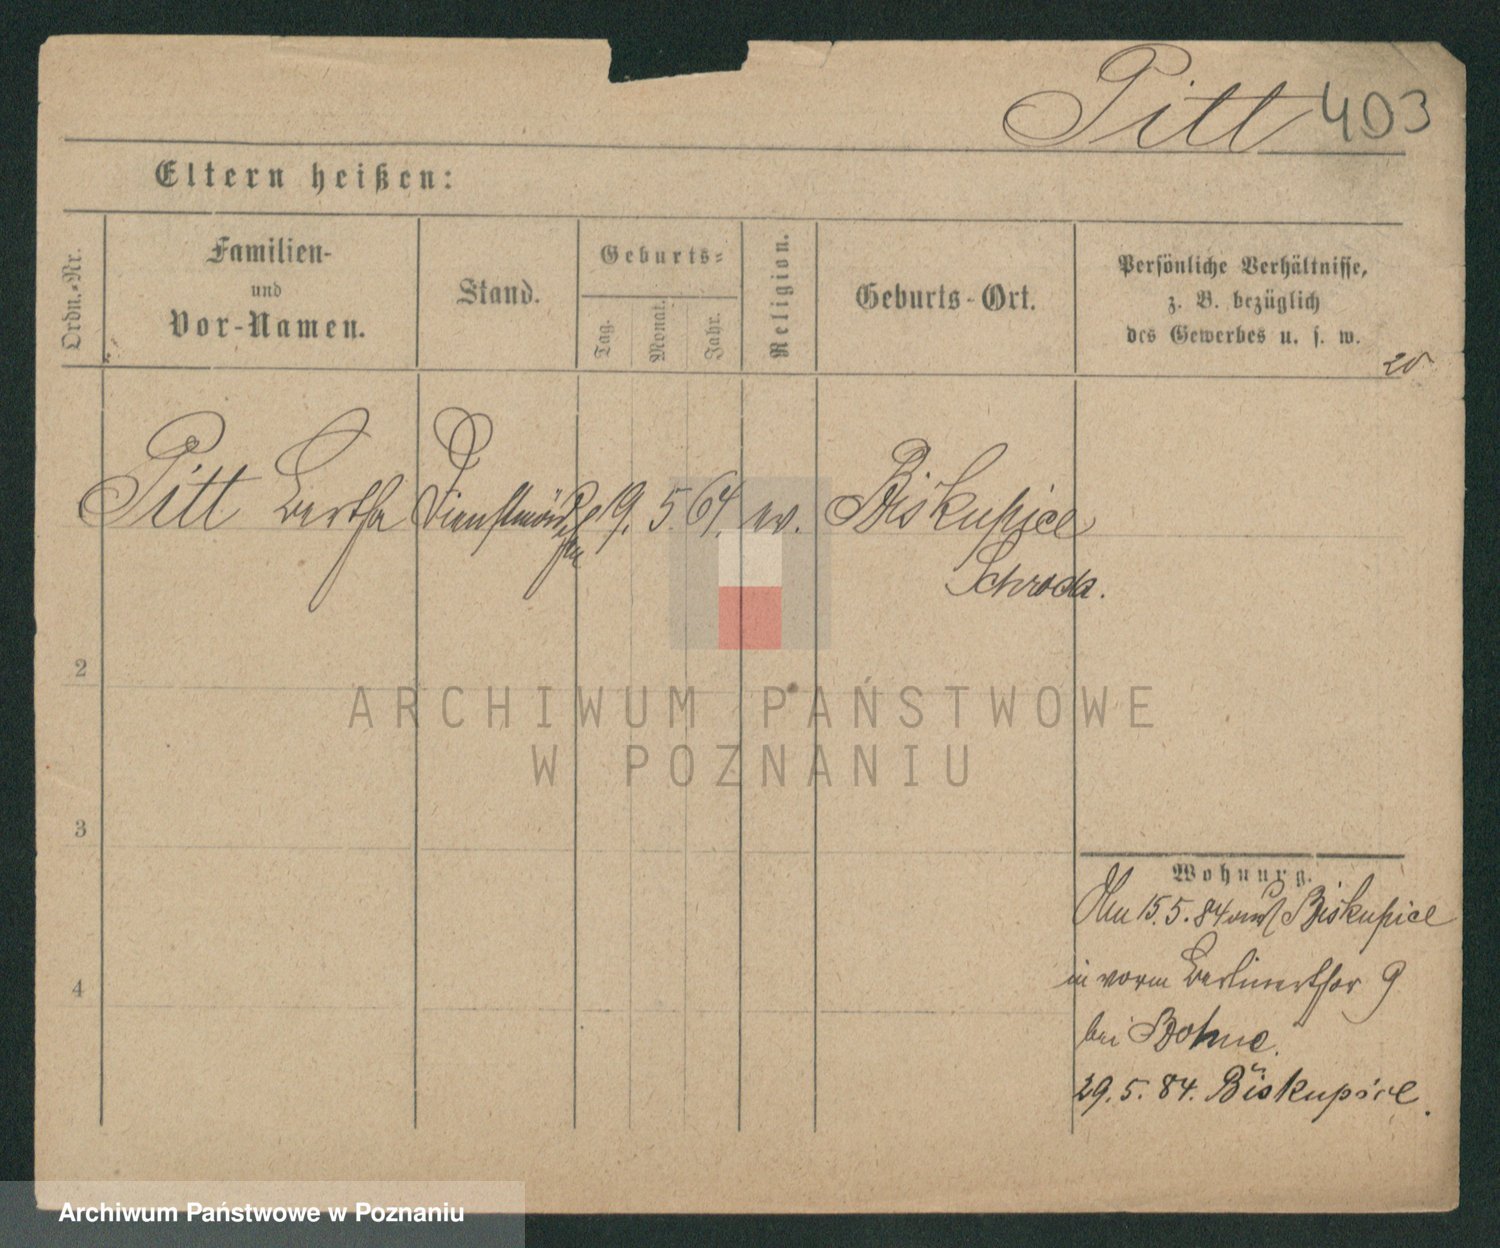 Pitt 403
Eltern heißen:
Ordn.-Nr.
Familien-
und
Vor-Namen.
Stand.
Geburts-
Tag.
Monat.
Jahr.
Religion.
Geburts-Ort.
Persönliche Verhältnisse,
z. B. bezüglich
des Gewerbes u. s. w.
20
Pitt Bertha Dienstmädchen 19. 5. 64. ev. Biskupice
Schroda.
2
ARCHIWUM PAŃSTWOWE
W POZNANIU
3
Wohnung.
15.5.84 aus Biskupice
in vorm Berlinerthor 9
bei Bohne.
4
29. 5. 84. Biskupice.
Archiwum Państwowe w Poznaniu